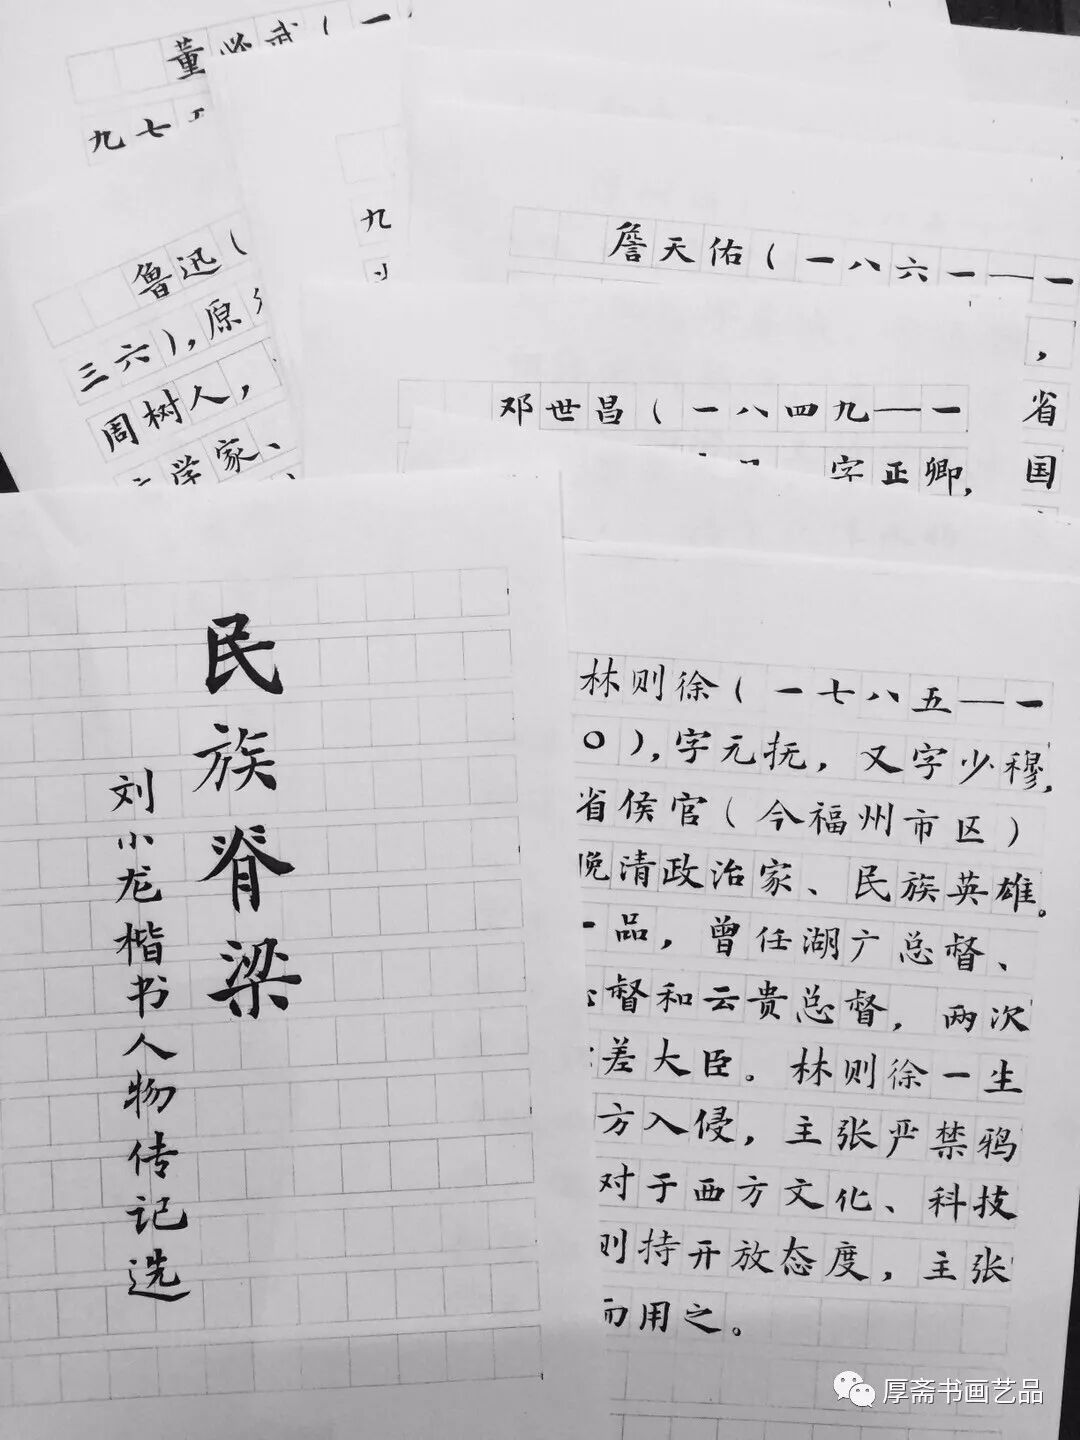 董必武（一
九七
九
鲁迅（
三六），原
周树人，
学家、
詹天佑（一八六一——一
，
省
国
邓世昌（一八四九——一
字正卿，
民族脊梁
刘小龙楷书人物传记选
林则徐（一七八五——一
〇），字元抚，又字少穆，
省侯官（今福州市区）
晚清政治家、民族英雄。
一品，曾任湖广总督、
督和云贵总督，两次
差大臣。林则徐一生
方入侵，主张严禁鸦
对于西方文化、科技
则持开放态度，主张
而用之。
厚斋书画艺品